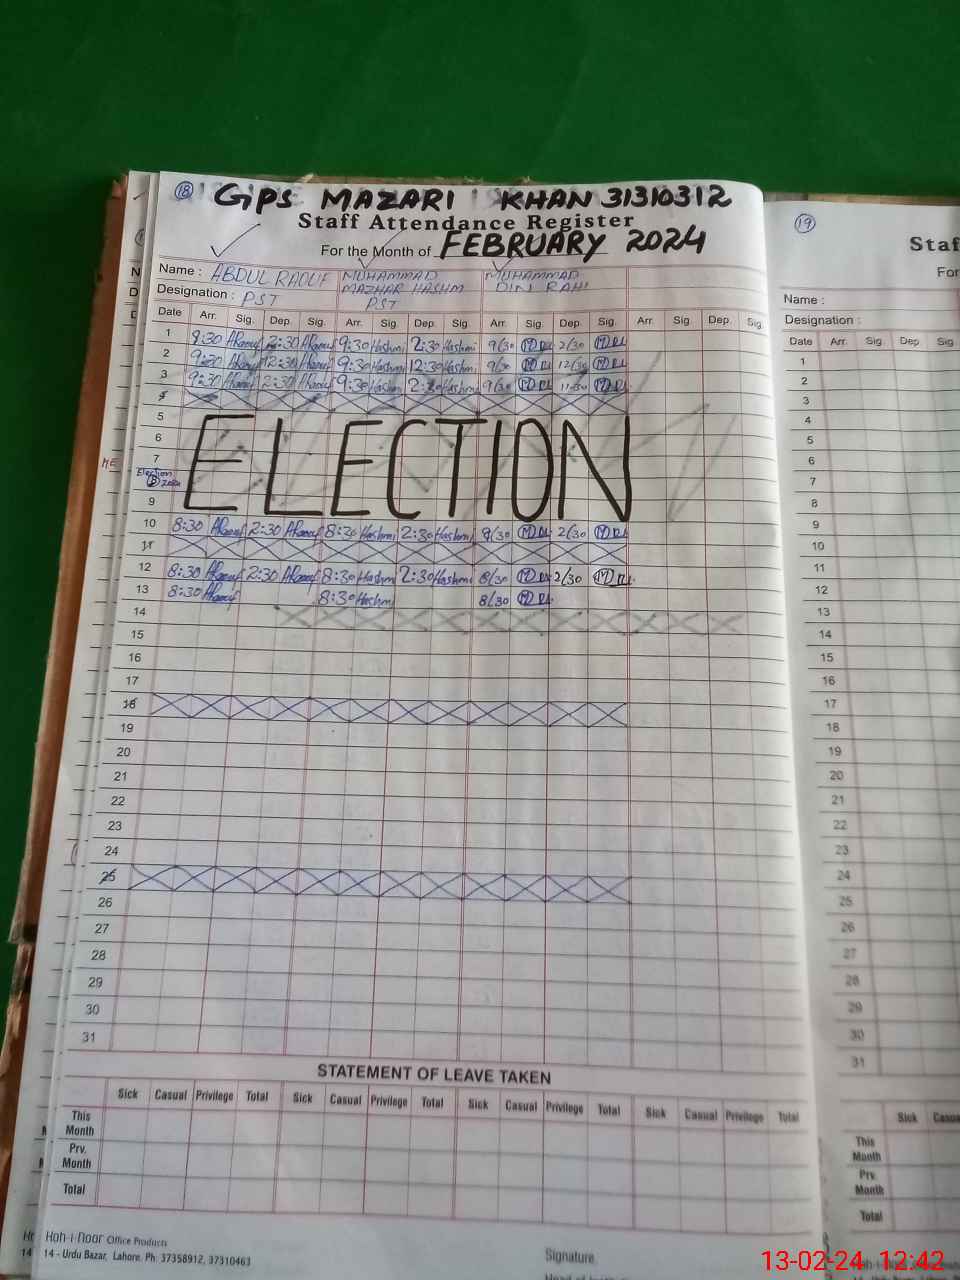 18 GPS MAZARI KHAN 31310312
Staff Attendance Register
For the Month of FEBRUARY 2024
Name : ABDUL RAOUF MUHAMMAD MAZHAR HASHM MUHAMMAD DIN RAHI
Designation : PST PST
Date Arr. Sig. Dep. Sig. Arr. Sig. Dep. Sig. Arr. Sig. Dep. Sig. Arr. Sig. Dep. Sig.
1 8:30 ARaouf 2:30 ARaouf 9:30 Hashmi 2:30 Hashmi 9/30 2/30
2 9:30 ARaouf 12:30 ARaouf 9:30 Hashmi 12:30 Hashmi 9/30 12/30
3 9:30 ARaouf 2:30 ARaouf 9:30 Hashmi Hashmi 9/30
4
5
6
7
ELECTION
Election
9
10 8:30 ARaouf 2:30 ARaouf 8:30 Hashmi 2:30 Hashmi 9/30 2/30
11
12 8:30 ARaouf 2:30 ARaouf 8:30 Hashmi 2:30 Hashmi 8/30 2/30
13 8:30 ARaouf 8:30 Hashmi 8/30
14
15
16
17
18
19
20
21
22
23
24
25
26
27
28
29
30
31
STATEMENT OF LEAVE TAKEN
Sick Casual Privilege Total Sick Casual Privilege Total Sick Casual Privilege Total Sick Casual Privilege Total
This Month
Prv. Month
Total
Koh-i-Noor Office Products
14 - Urdu Bazar, Lahore. Ph: 37358912, 37310463
Signature
19
Staf
For
Name :
Designation :
Date Arr. Sig. Dep Sig
1
2
3
4
5
6
7
8
9
10
11
12
13
14
15
16
17
18
19
20
21
22
23
24
25
26
27
28
29
30
31
Sick Casua
This Month
Prv. Month
Total
13-02-24 12:42